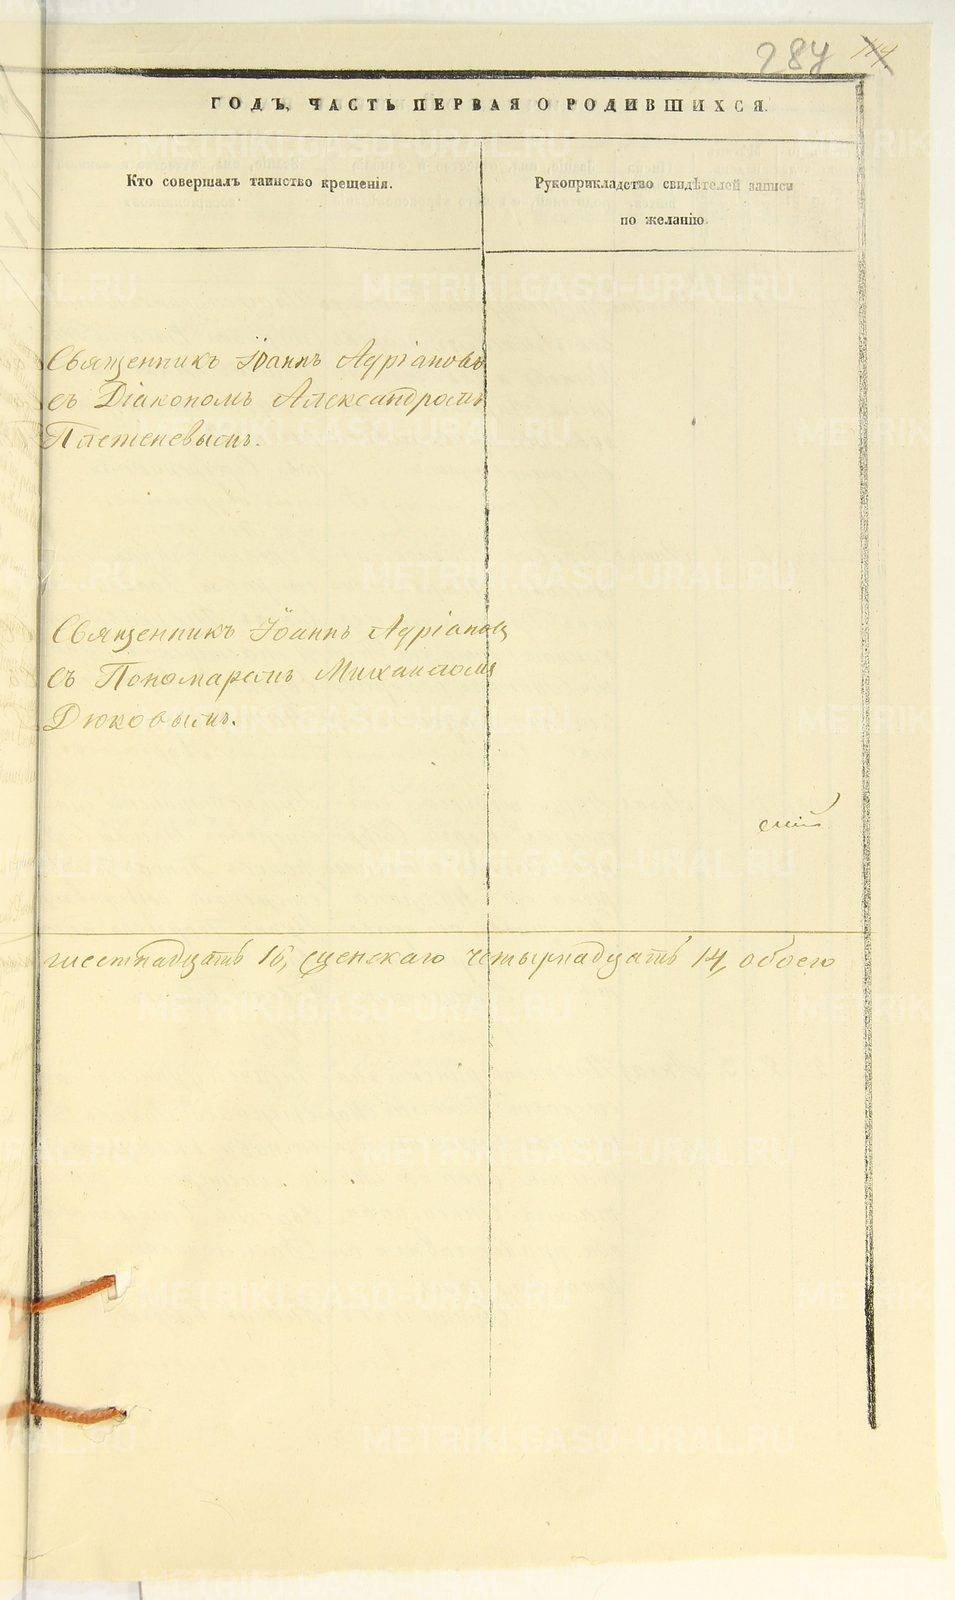 284 114
ГОДЪ, ЧАСТЬ ПЕРВАЯ О РОДИВШИХСЯ.
Кто совершалъ таинство крещенія.
Рукоприкладство свидѣтелей записи
по желанію.
Священникъ Іоаннъ Адріановъ
съ Діакономъ Александромъ
Плетеневымъ.
Священникъ Іоаннъ Адріановъ
съ Пономаремъ Михаиломъ
Дюковымъ.
шестнадцать 16, женскаго четырнадцать 14, обоего
METRIKI.GASO-URAL.RU